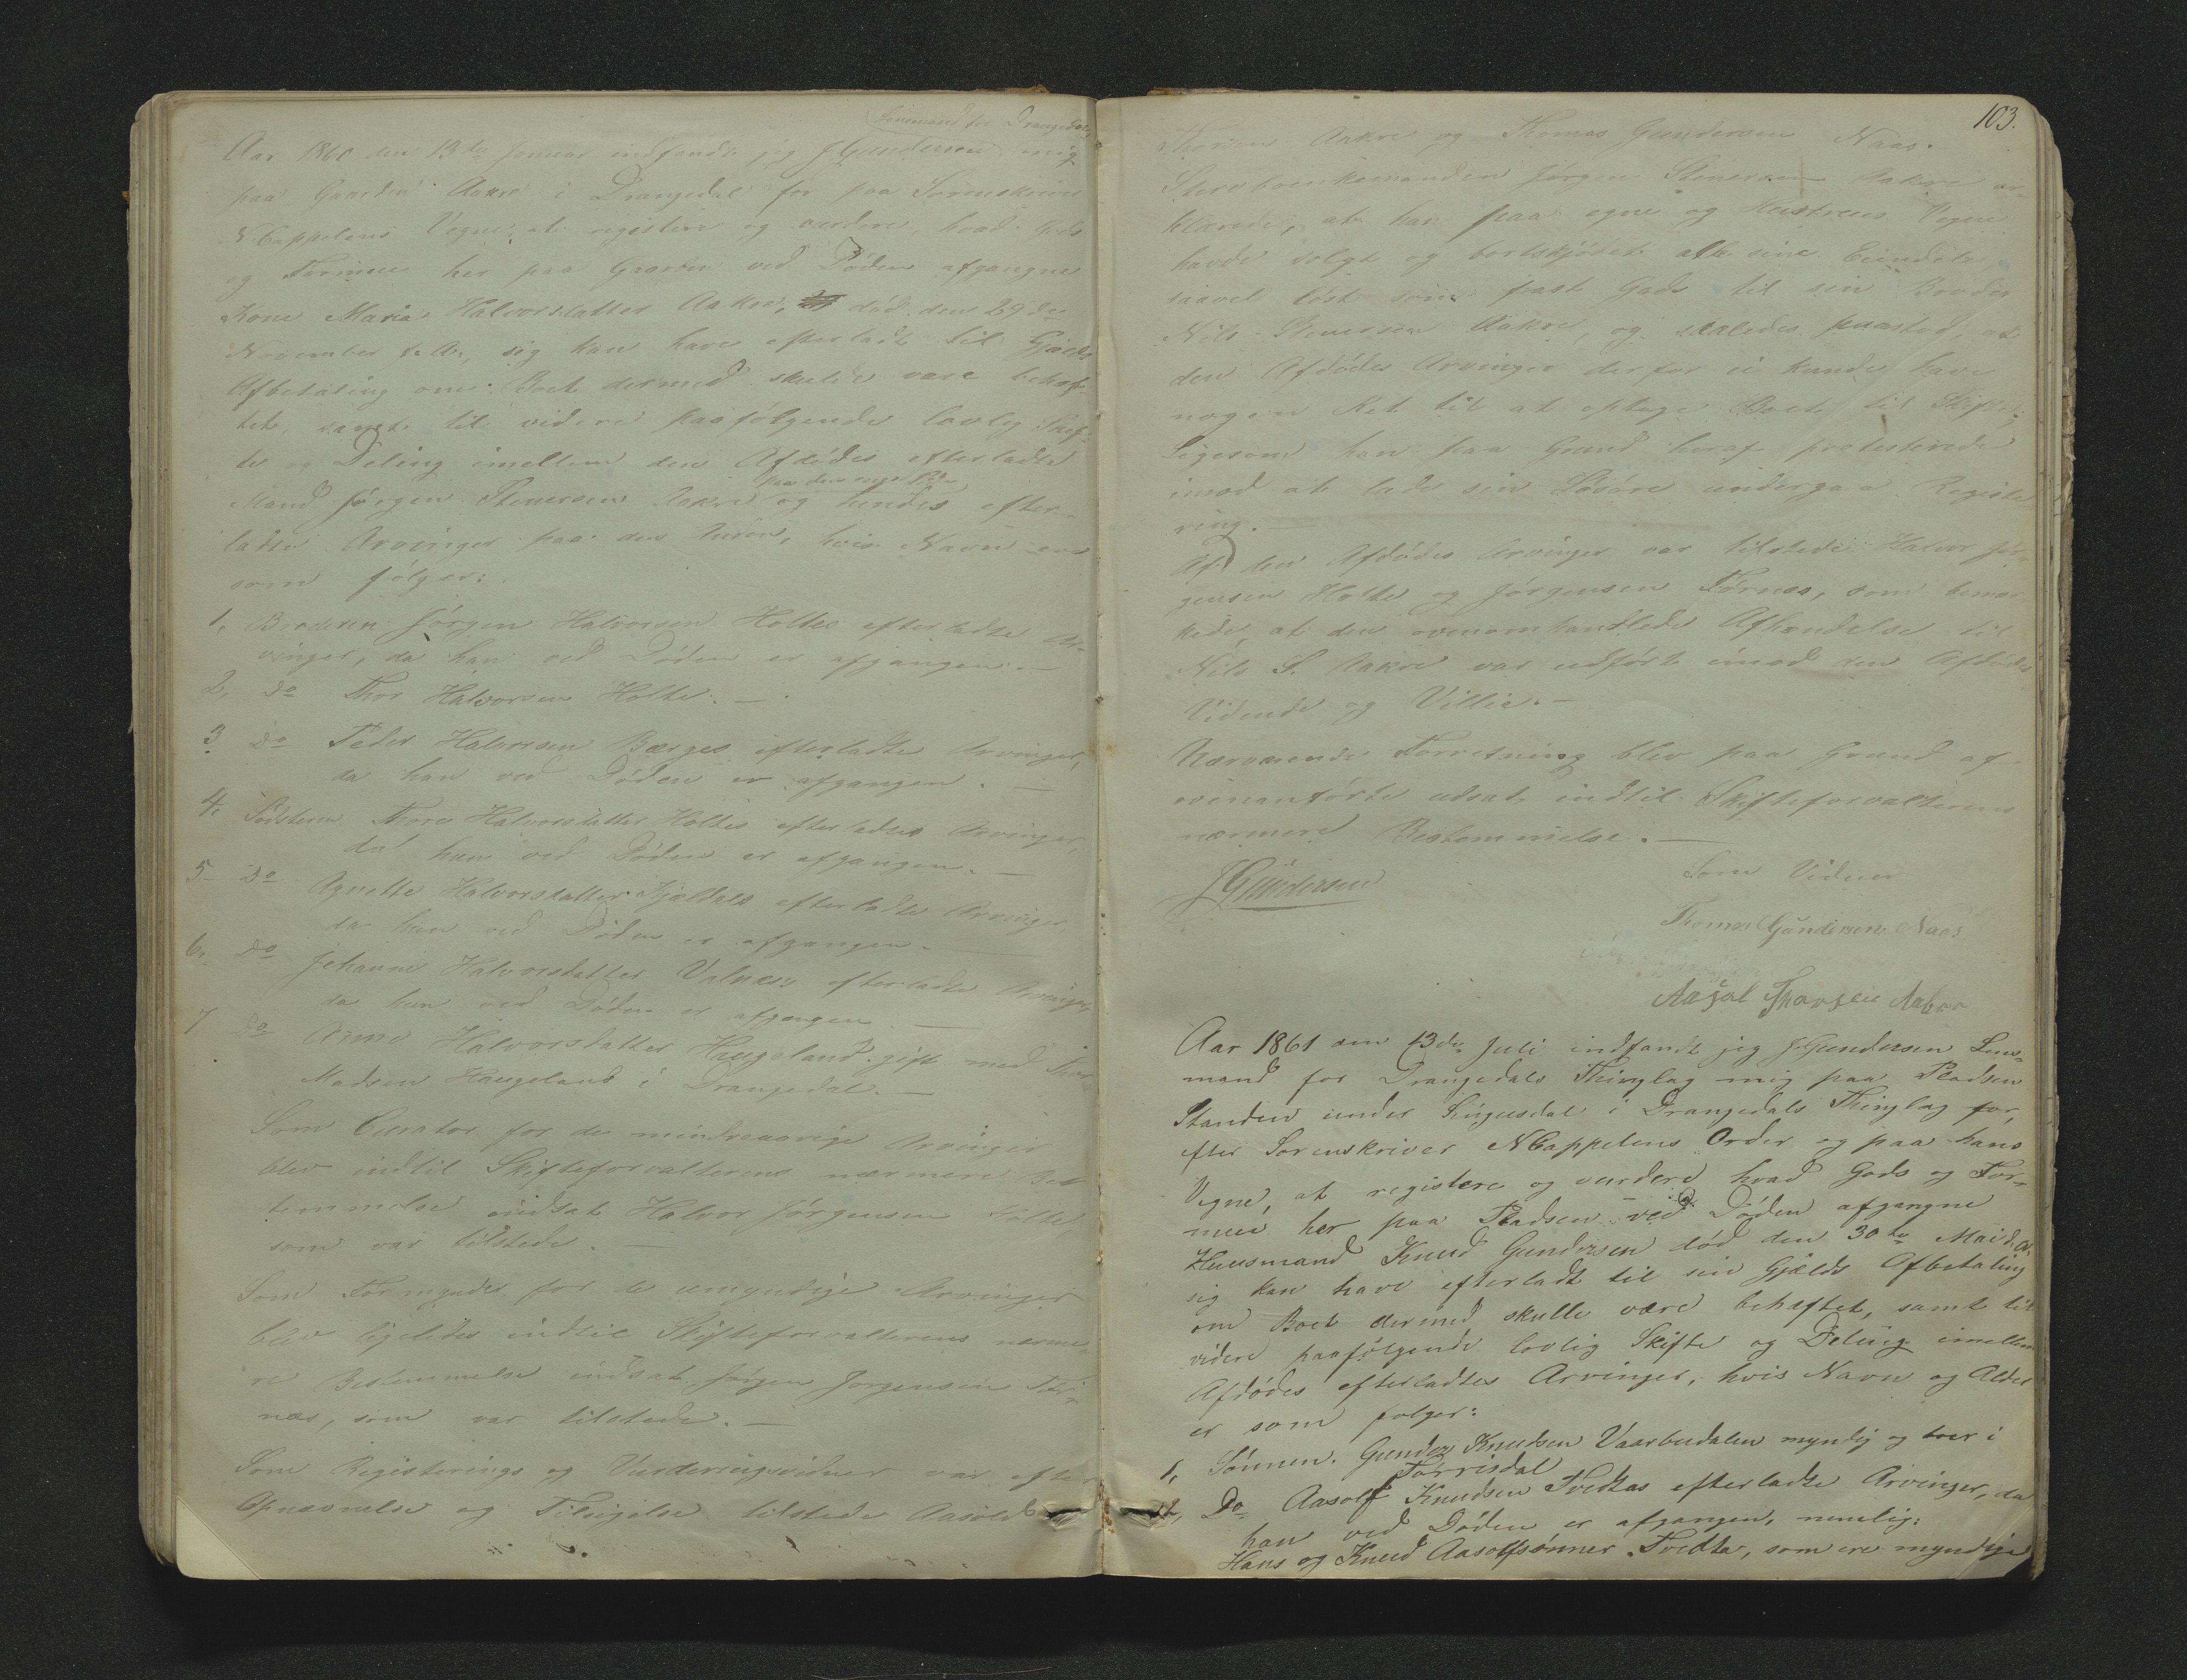 Lensmand for Drangedal
Aar 1860 den 13de Januar indfandt jeg JGundersen mig
paa Gaarden Aakre i Drangedal for paa Sorenskriver
N. Cappelens Vegne, at registere og vurdere, hvad Gods
og Formue her paa Gaarden ved Døden afgangne
Kone Maria Halvorsdatter Aakre, død den 29de
November f. A., sig kan have efterladt til Gjælds
Afbetaling om Boet dermed skulde være behæf-
tet, samt til videre paafølgende lovlig Skif-
te og Deling imellem den Afdødes efterladte
Mand Jørgen Stenersen Aakre paa den ene Side og hendes efter-
ladte Arvinger paa den Anden, hvis Navn ere
som følger:
1, Broderen Jørgen Halvorsen Holtes efterladte Ar-
vinger, da han ved Døden er afgangen. —
2, Do Thor Halvorsen Holte. —
3 Do Peder Halvorsen Bærges efterladte Arvinger,
da han ved Døden er afgangen. —
4, Södsteren Thore Halvorsdatter Holtes efterladtes Arvinger,
da hun ved Døden er afgangen. —
5 Do Agnette Halvorsdatter Kjældals efterladte Arvinger,
da hun ved Døden er afgangen. —
6, Do Johanne Halvorsdatter Valnæs, efterladte Arvinger,
da hun ved Døden er afgangen. —
7 Do Anne Halvorsdatter Haugeland, gift med Thor
Madsen Haugeland i Drangedal. —
Som Curator for de mindreaarige Arvinger
blev indtil Skifteforvalterens nærmere Bes-
temmelse indsat Halvor Jørgensen Holte,
som var tilstede. —
Som Formynder for de umyndige Arvinger
blev ligeledes indtil Skifteforvalterens nærme-
re Bestemmelse indsat Jørgen Jørgensen Tør-
næs, som var tilstede. —
Som Registerings og Vurderingsvidner var efter
Opnævnelse og Tilsigelse tilstede Aasold
103.
Thorsen Aakre og Thomas Gundersen Naas.
Stervboenkemanden Jørgen Stenersen Aakre er-
klærede, at han paa egne og Hustrues Vegne
havde solgt og bortskjödet alle sine Eiendele,
saavel løst som fast Gods til sin Broder
Nils Stenersen Aakre, og saaledes paastod, at
den Afdødes Arvinger derfor ei kunde have
nogen Ret til at optage Boet til Skifte,
Ligesom han paa Grund heraf protesterede
imod at lade sin Løsøre undergaa Registe-
ring. —
Af den Afdødes Arvinger var tilstede Halvor Jør-
gensen Holte og Jørgensen Tørnæs, som bemær-
kede, at den ovenomhandlede Afhændelse til
Nils S. Aakre var udført imod den Afdødes
Vidende og Villie. —
Nærværende Forretning blev paa Grund af
ovenanførte udsat indtil Skifteforvalterens
nærmere Bestemmelse. —
JGundersen
Som Vidner
Thomas Gundersen Naas
Aasal Thorsen Aakre
Aar 1861 den 13de Juli indfandt jeg J. Gundersen Lens-
mand for Drangedals Thinglag mig paa Pladsen
Standen under Lingusdal i Drangedals Thinglag for,
efter Sorenskriver NCappelens Order og paa hans
Vegne, at registere og vurdere hvad Gods og For-
mue her paa Pladsen ved Døden afgangne
Huusmand Knud Gundersen død den 30te Mai d. A.
sig kan have efterladt til sin Gjælds Afbetaling
om Boet dermed skulle være behæftet, samt til
videre paafølgende lovlig Skifte og Deling imellem
Afdødes efterladtes Arvinger, hvis Navn og Alder
er som følger:
1, Sønnen. Gunder Knudsen Vaarbudalen myndig og boer i
Tørrisdal
2, Do Aasolf Knudsen Tvedtas efterladte Arvinger, da
han ved Døden er afgangen, nemlig:
Hans og Knud Aasolfsønner Tvedta, som ere myndige